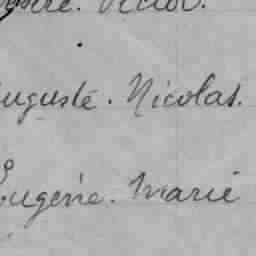 Victor.
Auguste. Nicolas.
Eugénie. Marie